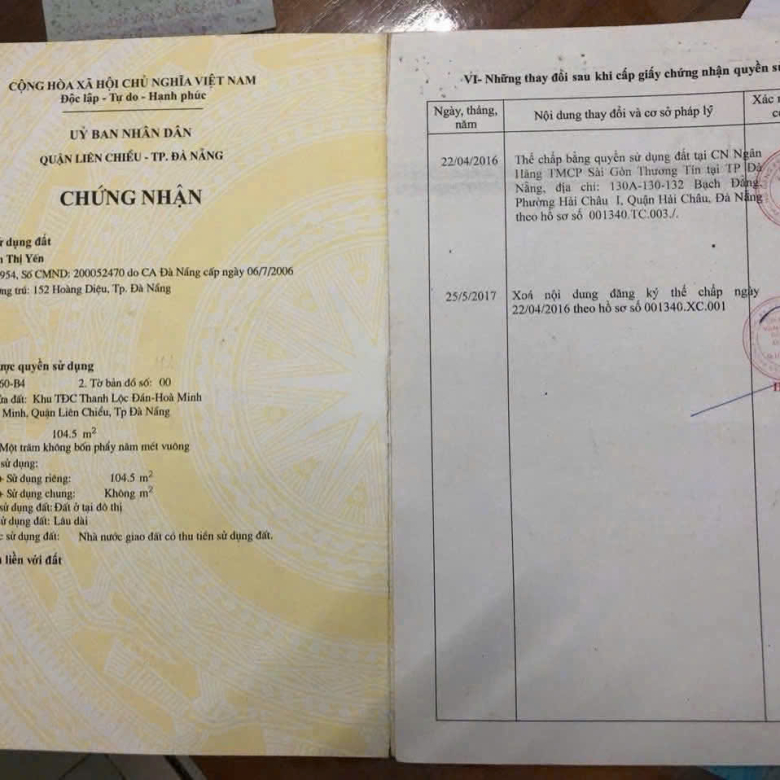 CỘNG HÒA XÃ HỘI CHỦ NGHĨA VIỆT NAM
Độc lập - Tự do - Hanh phúc
UỶ BAN NHÂN DÂN
QUẬN LIÊN CHIỂU - TP. ĐÀ NẴNG
CHỨNG NHẬN
ử dụng đất
Thị Yén
954, Số CMND: 200052470 do CA Đà Nẵng cấp ngày 06/7/2006
ng trú: 152 Hoàng Diệu, Tp. Đà Nẵng
ược quyền sử dụng
60-B4 2. Tờ bản đồ số: 00
ửa đất: Khu TĐC Thanh Lộc Đán-Hoà Minh
Minh, Quận Liên Chiểu, Tp Đà Nẵng
104.5 m²
Một trăm không bốn phẩy năm mét vuông
sử dụng:
+ Sử dụng riêng: 104.5 m²
+ Sử dụng chung: Không m²
sử dụng đất: Đất ở tại đô thị
sử dụng đất: Lâu dài
c sử dụng đất: Nhà nước giao đất có thu tiền sử dụng đất.
liền với đất
VI- Những thay đổi sau khi cấp giấy chứng nhận quyền sử
Ngày, tháng, năm
Nội dung thay đổi và cơ sở pháp lý
Xác
22/04/2016
Thế chấp bằng quyền sử dụng đất tại CN Ngân
Hàng TMCP Sài Gòn Thương Tín tại TP Đà
Nẵng, địa chỉ: 130A-130-132 Bạch Đằng,
Phường Hải Châu I, Quận Hải Châu, Đà Nẵng
theo hồ sơ số 001340.TC.003./.
25/5/2017
Xoá nội dung đăng ký thế chấp ngày
22/04/2016 theo hồ sơ số 001340.XC.001